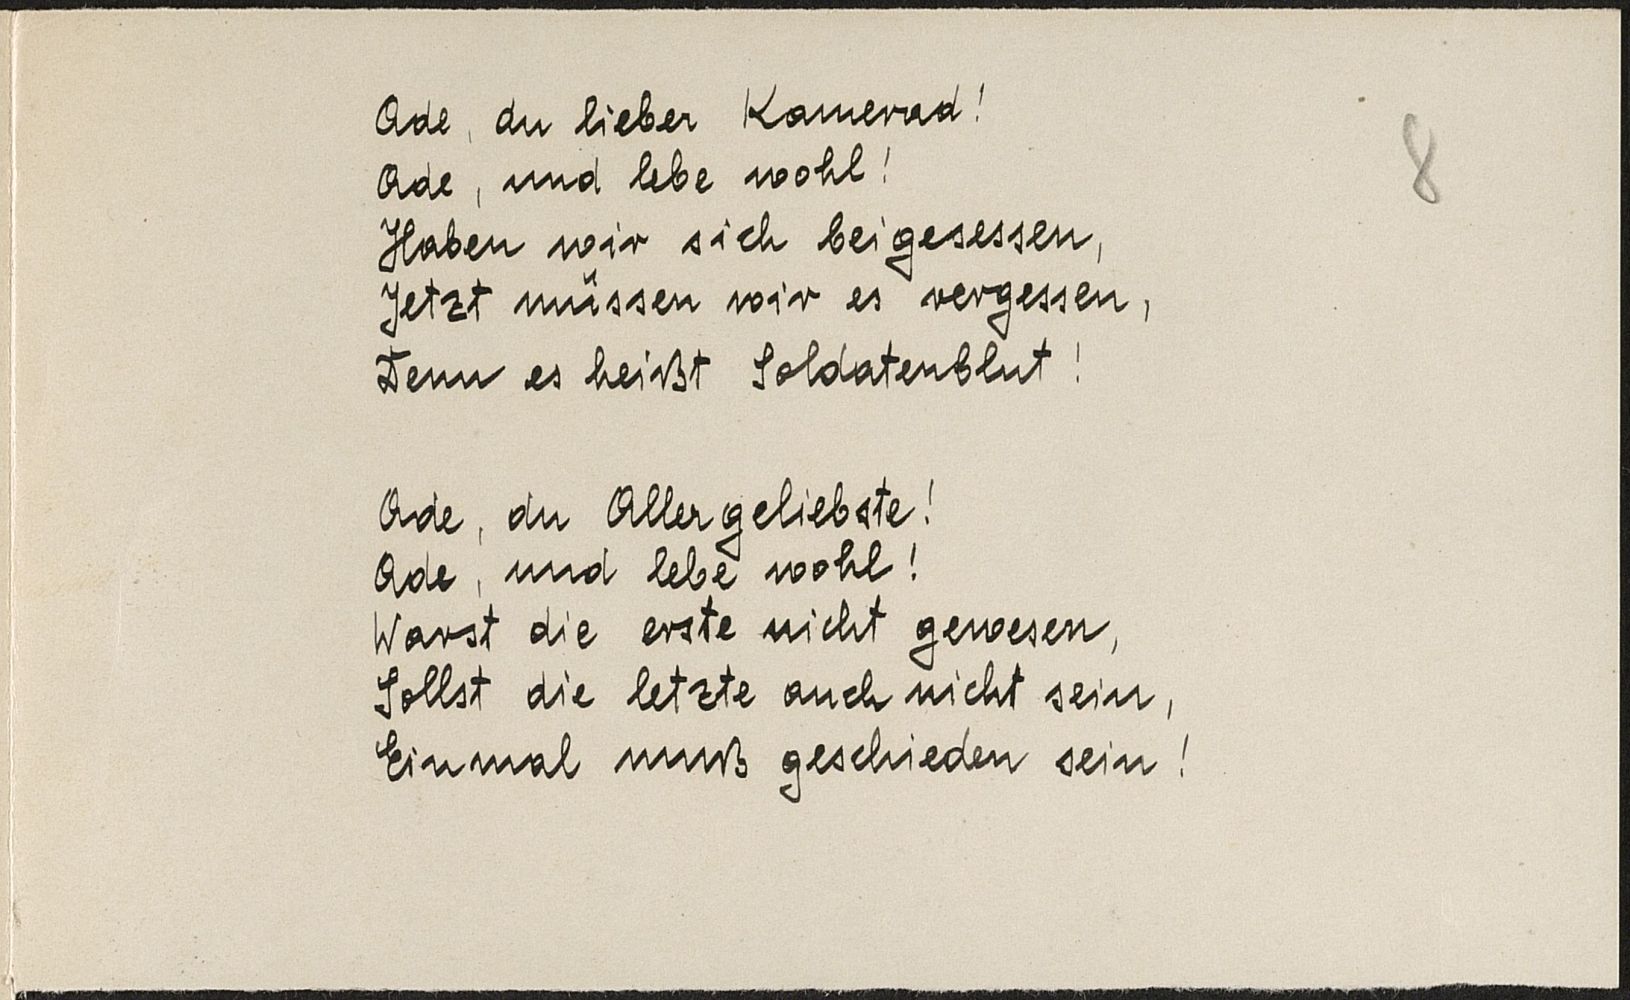 Ade, du lieber Kamerad!
8
Ade, und lebe wohl!
Haben wir sich beigesessen,
Jetzt müssen wir es vergessen,
Denn es heißt Soldatenblut!
Ade, du Allergeliebste!
Ade, und lebe wohl!
Warst die erste nicht gewesen,
Sollst die letzte auch nicht sein,
Einmal muß geschieden sein!